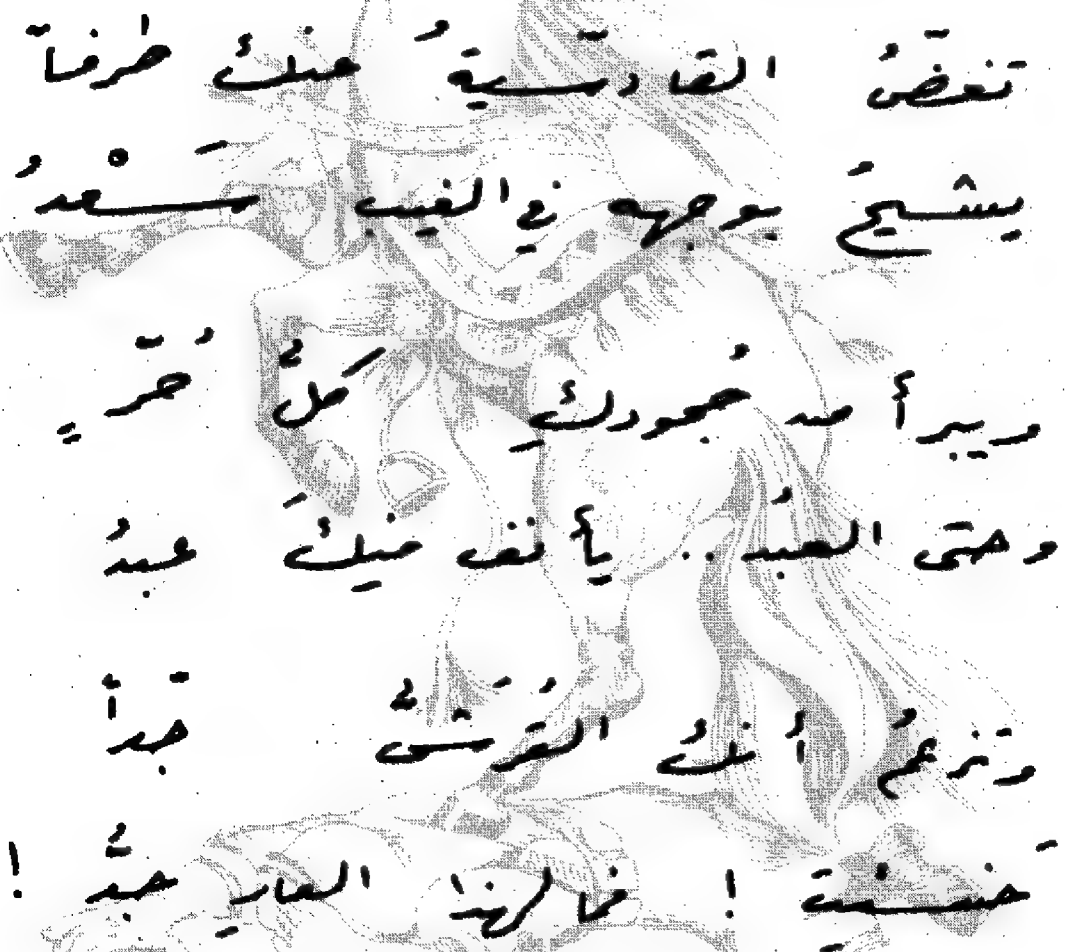 تغضُّ القادسيّةُ عنكَ طرفاً
يشيحُ بوجههِ في الغيبِ سَعْدُ
ويبرأ من جُحودِكَ كلُّ حُرٍّ
وحتى العبدُ .. يأنفُ منكَ عبدُ
وتزعمُ أنكَ القُرَشيُّ جَدّاً
خَسِئْتَ ! فما لهذا العارِ جدُّ !